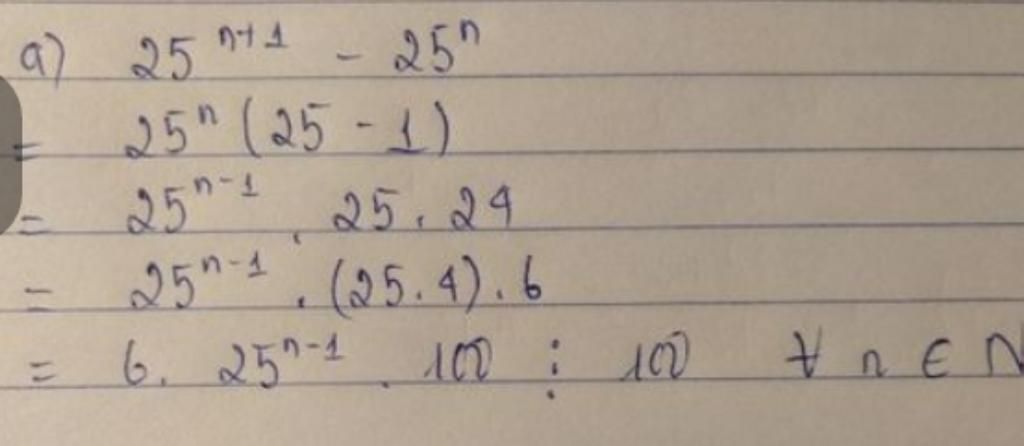 a) 25ⁿ⁺¹ - 25ⁿ
= 25ⁿ (25 - 1)
= 25ⁿ⁻¹ . 25 . 24
= 25ⁿ⁻¹ . (25.4) . 6
= 6. 25ⁿ⁻¹ . 100 ⋮ 100 ∀ n ∈ N